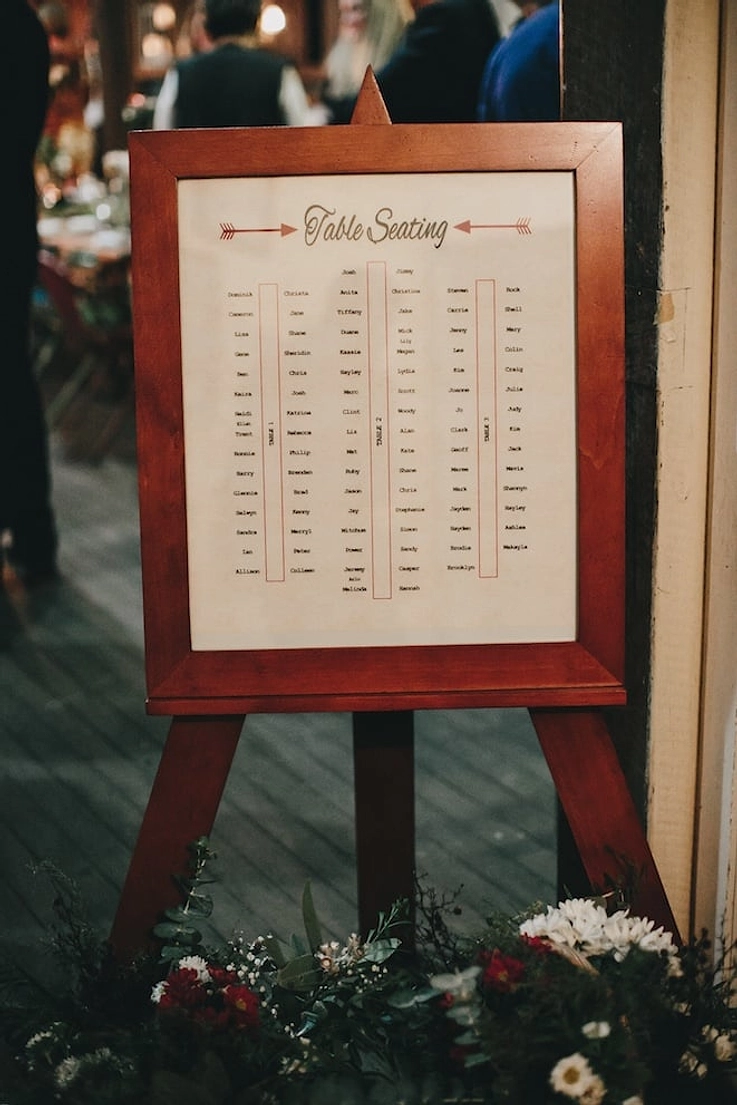 Table Seating
Josh Jimmy
Dominik Christa Anita Christine Steven Rock
Cameron Jane Tiffany Jake Carrie Shell
Lisa Shane Duane Mick Jenny Mary
Lily
Gene Sheridin Kassie Megan Les Colin
Ben Chris Hayley Lydia Kim Craig
Keira Josh Marc Scott Joanne Julie
Heidi Katrina Clint Woody Jo Judy
Ellen
Trent Rebecca Liz Alan Clark Kim
Bonnie Philip Mat Kate Geoff Jack
Harry Brenden Ruby Shane Maree Mavis
Glennis Brad Jason Chris Mark Shannyn
Selwyn Kenny Jay Stephanie Jayden Hayley
Sandra Merryl Mitcham Simon Hayden Ashlee
Ian Peter Power Sandy Brodie Makayla
Allison Colleen Jeremy Casper Brooklyn
Melinda Hannah
TABLE 1
TABLE 2
TABLE 3